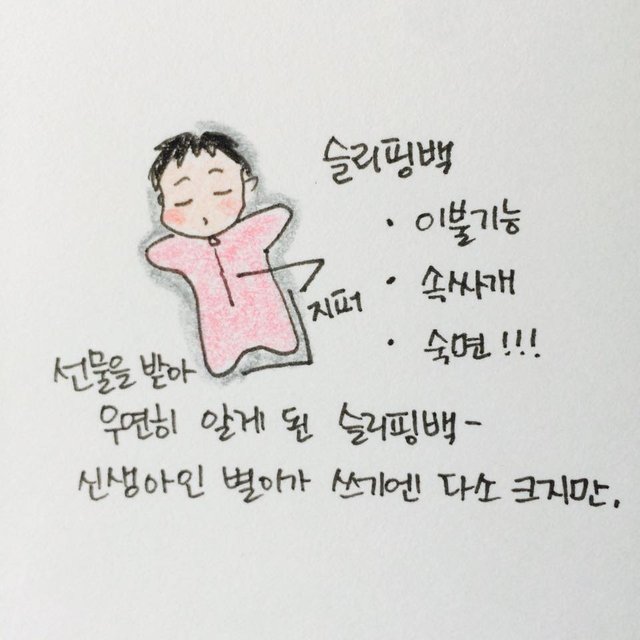 슬리핑백
· 이불기능
· 속싸개
· 숙면 !!!
지퍼
선물을 받아
우연히 알게 된 슬리핑백-
신생아인 별아가 쓰기엔 다소 크지만.